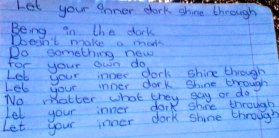 Let your inner dark shine through
Being in the dark
Doesn't make a mark
Do something new
for your own do
Let your inner dark shine through
Let your inner dark shine through
No matter what they say or do
Let your inner dark shine through
Let your inner dark shine through